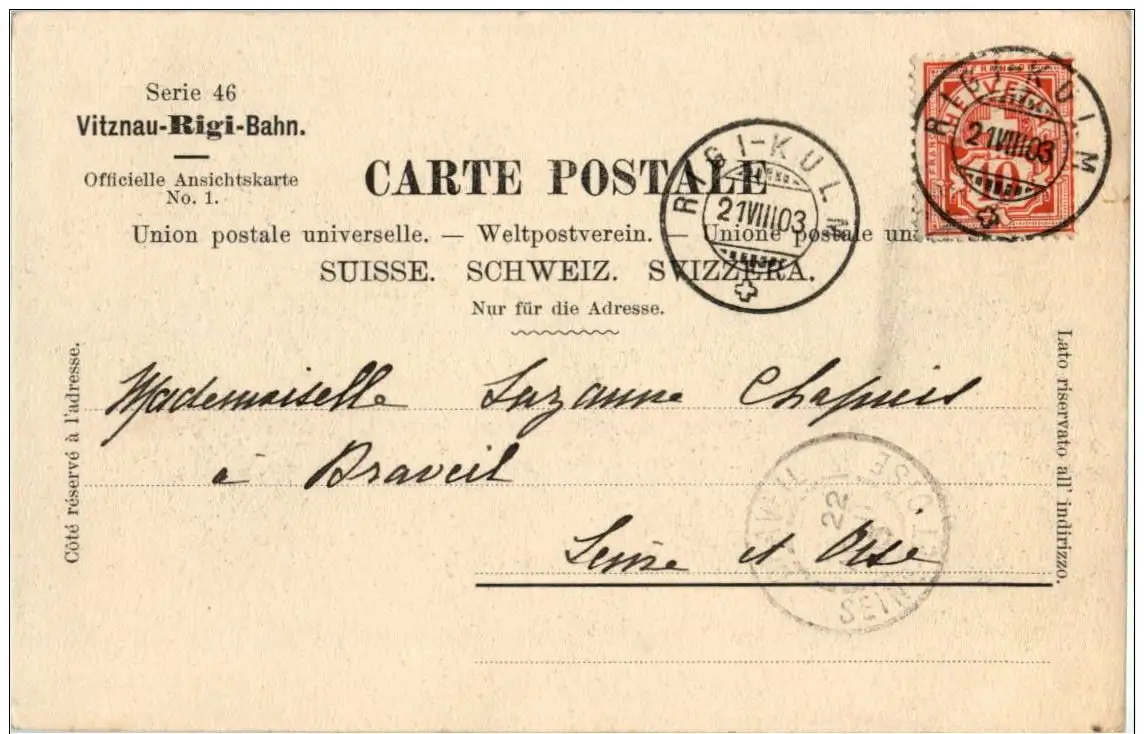 Serie 46
Vitznau-Rigi-Bahn.
Officielle Ansichtskarte
No. 1.
CARTE POSTALE
Union postale universelle. — Weltpostverein. — Unione postale un
SUISSE. SCHWEIZ. SVIZZERA.
Nur für die Adresse.
RIGI-KULM
21VIII03
HELVETIA
10
RIGI-KULM
21VIII03
Côté réservé à l'adresse.
Lato riservato all' indirizzo.
Mademoiselle Suzanne Chapuis
à Draveil
Seine et Oise
22
SEINE ET OISE